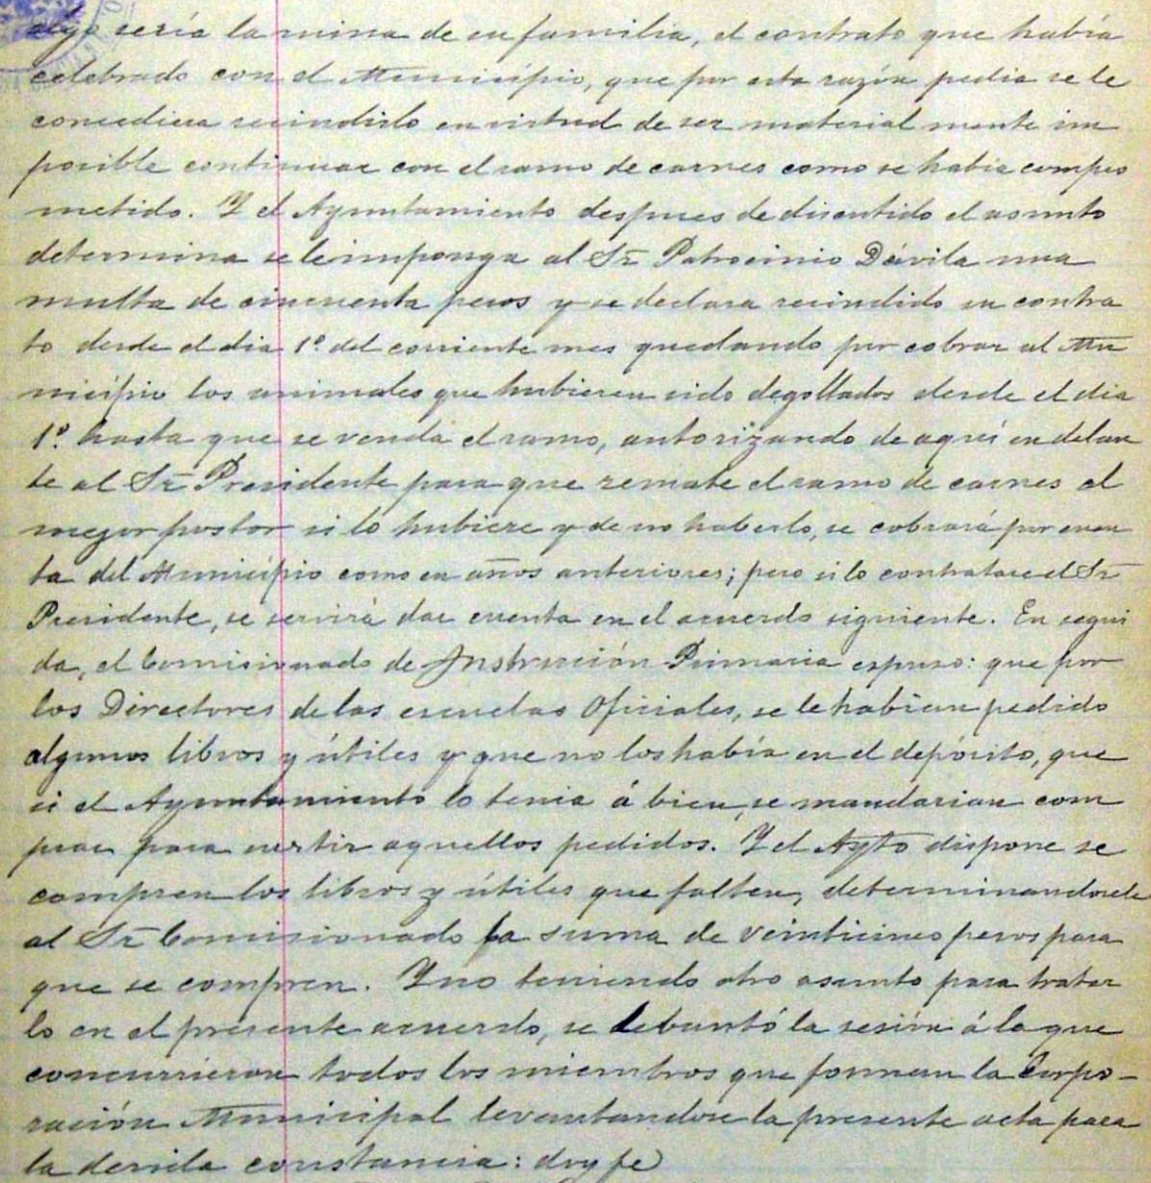 algo sería la ruina de su familia, el contrato que había
celebrado con el Municipio, que por esta razón pedia se le
concediera recindirlo en virtud de ser material mente im
posible continuar con el ramo de carnes como se había compro
metido. Y el Ayuntamiento despues de discutido el asunto
determina se le imponga al Sr Patrocinio Dávila una
multa de cincuenta pesos y se declara recindido su contra
to desde el dia 1º del corriente mes quedando por cobrar al Mu
nicipio los animales que hubieren sido degollados desde el dia
1º hasta que se venda el ramo, autorizando de aquí en delan
te al Sr Presidente para que remate el ramo de carnes al
mejor postor si lo hubiere y de no haberlo, se cobrará por cuen
ta del Municipio como en años anteriores; pero si lo contratare el Sr
Presidente, se servirá dar cuenta en el acuerdo siguiente. En segui
da, el Comisionado de Instrucción Primaria espuso: que por
los Directores de las escuelas Oficiales, se le habian pedido
algunos libros y útiles y que no los había en el depósito, que
si el Ayuntamiento lo tenia á bien, se mandarian com
prar para surtir aquellos pedidos. Y el Ayto dispone se
compren los libros y útiles que falten, determinandosele
al Sr Comisionado la suma de veinticinco pesos para
que se compren. Y no teniendo otro asunto para tratar
lo en el presente acuerdo, se lebantó la sesión á la que
concurrieron todos los miembros que forman la Corpo-
ración Municipal levantandose la presente acta para
la devida constancia: doy fe